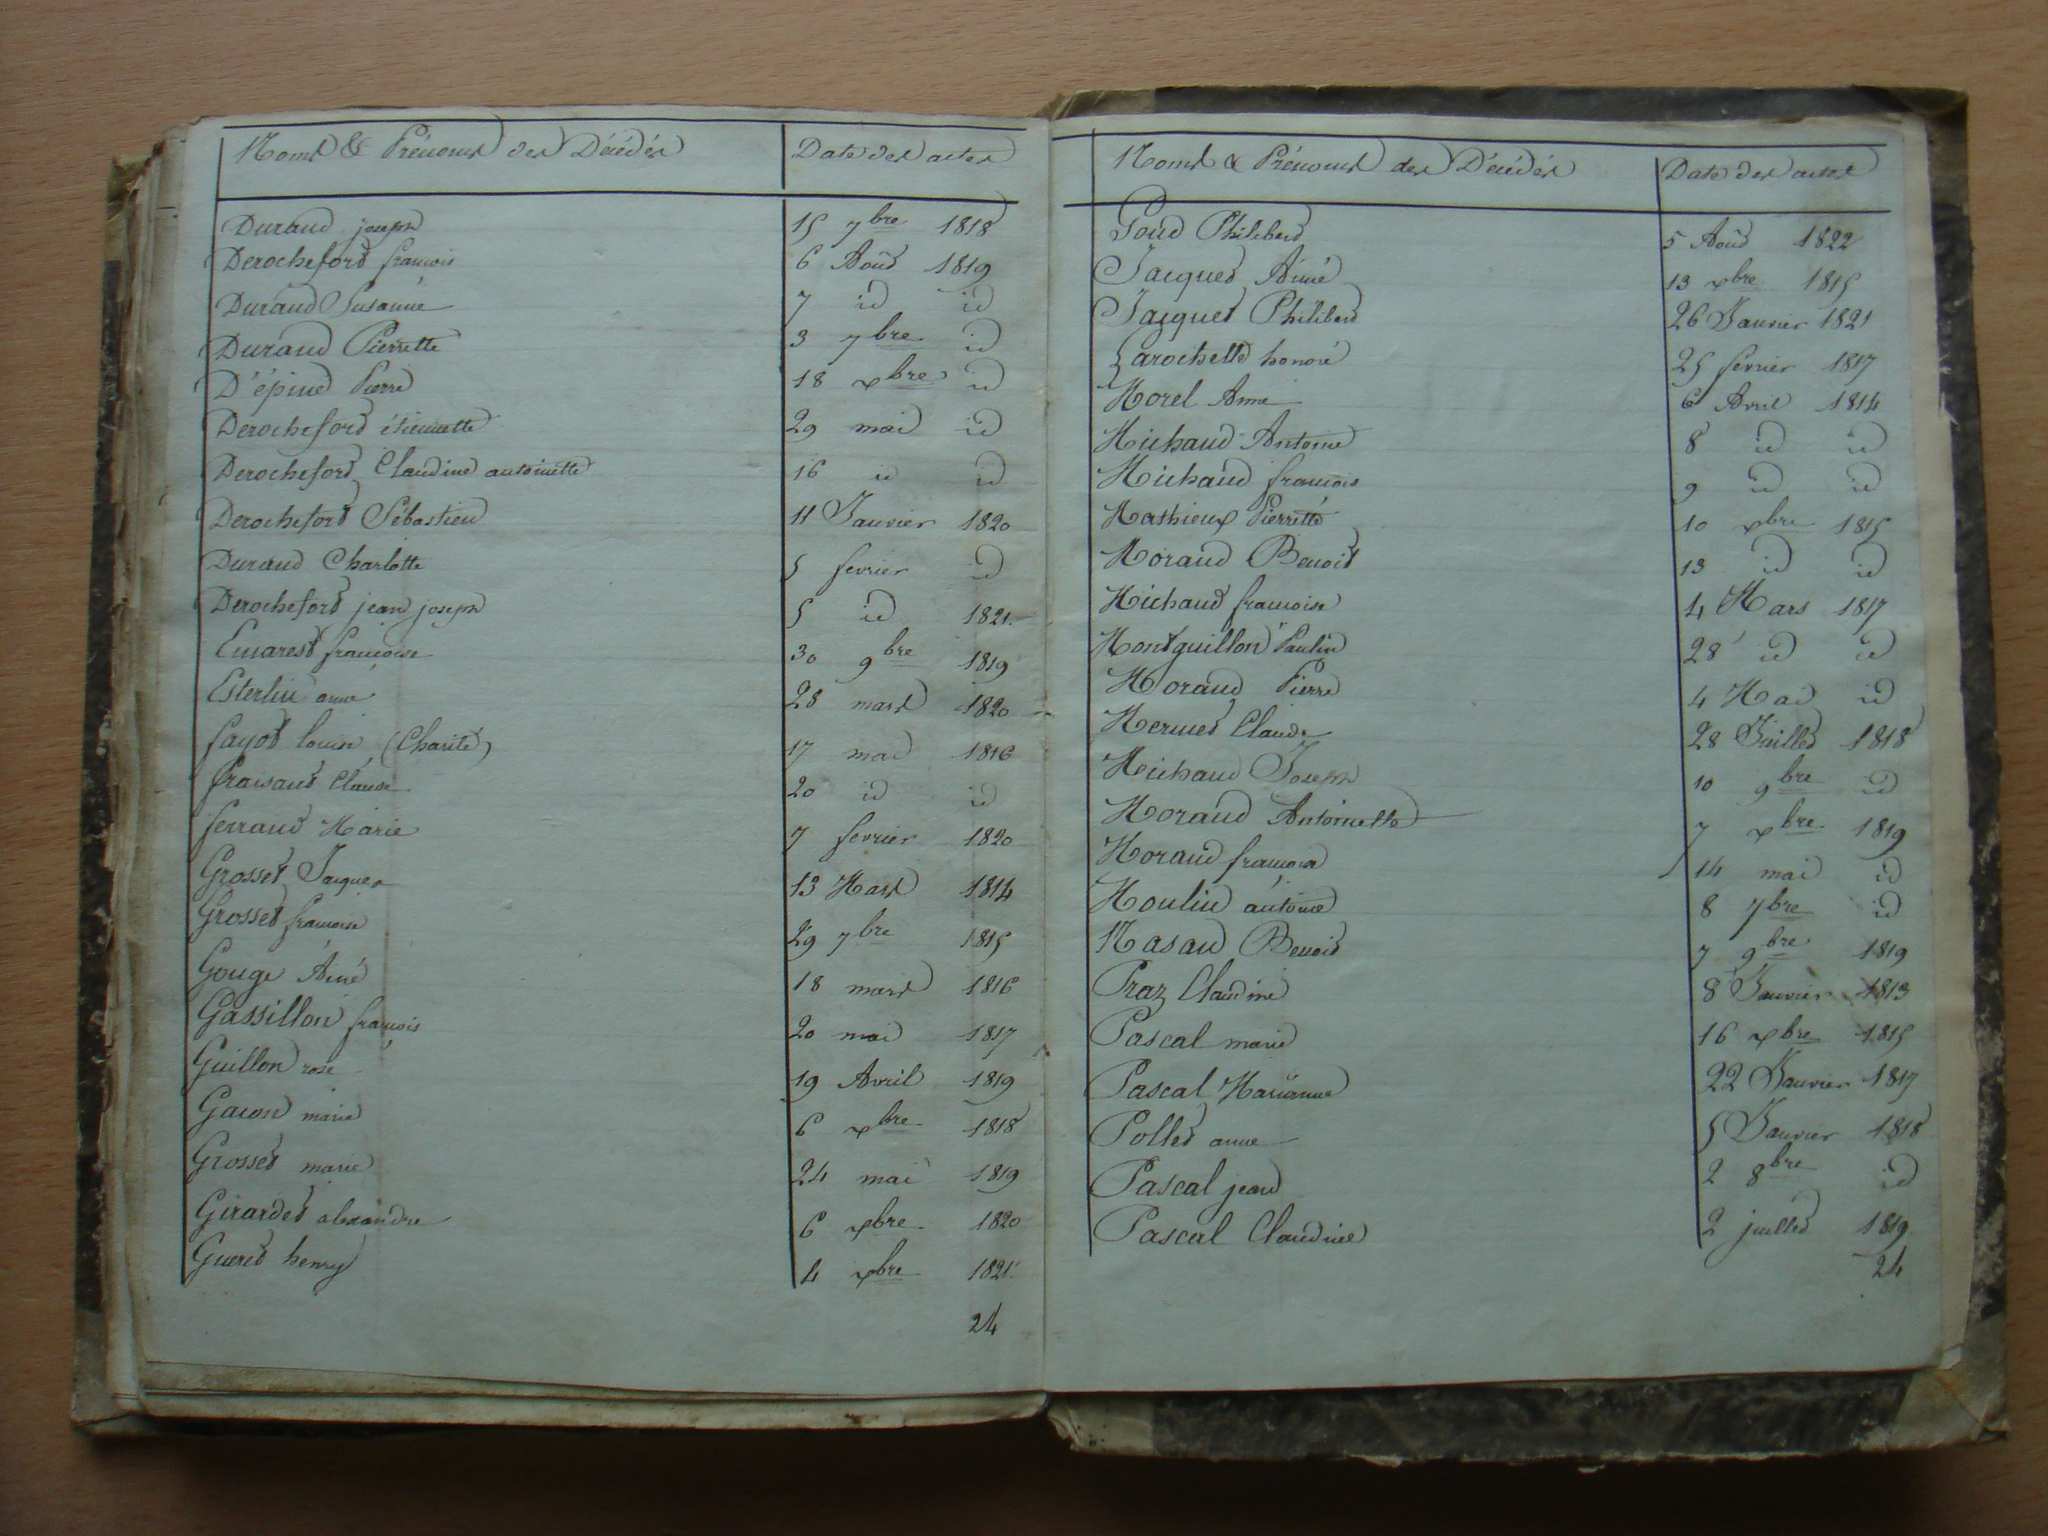 Noms & Prénoms des Décédés Date des actes
Durand joseph 15 7bre 1818
Derochefort francois 6 Août 1819
Durand Susanne 7 id id
Durand Pierrette 3 7bre id
D'épine Pierre 18 xbre id
Derochefort étiennette 29 mai id
Derochefort Claudine antoinette 16 id id
Derochefort Sébastien 11 Janvier 1820
Durand Charlotte 5 fevrier id
Derochefort jean joseph 5 id 1821
francoise 30 9bre 1819
Esterlin anne 28 mars 1820
fayot louise (Charité) 17 mai 1816
Claude 20 id id
ferrand Marie 7 fevrier 1820
Grosset Jacques 13 Mars 1814
Grosset francoise 29 7bre 1815
Gouge Aimé 18 mars 1816
Gassillon francois 20 mai 1817
Guillon rose 19 Avril 1819
Gacon marie 6 xbre 1818
Grosset marie 24 mai 1819
Girardet alexandre 6 xbre 1820
Gueret henry 4 xbre 1821
24
Noms & Prénoms des Décédés Date des actes
Philibert 5 Août 1822
Jacquet Aimé 13 xbre 1815
Jacquet Philibert 26 Janvier 1821
Larochette honoré 25 fevrier 1817
Morel Anne 6 Avril 1814
Michaud Antoine 8 id id
Michaud francois 9 id id
Mathieux Pierrette 10 xbre 1815
Morand Benoit 13 id id
Michaud francoise 4 Mars 1817
Montguillon Paulin 28 id id
Morand Pierre 4 Mai id
Mermet Claude 28 Juillet 1818
Michaud Joseph 10 9bre id
Morand Antoinette 7 xbre 1819
Morand 14 mai id
Moulin antoine 8 7bre id
Nasau Benoit 7 9bre 1819
Praz Claudine 8 Janvier 1813
Pascal marie 16 xbre 1815
Pascal Marianne 22 Janvier 1817
Pollet anne 5 Janvier 1818
Pascal jean 2 8bre id
Pascal Claudine 2 juillet 1819
24